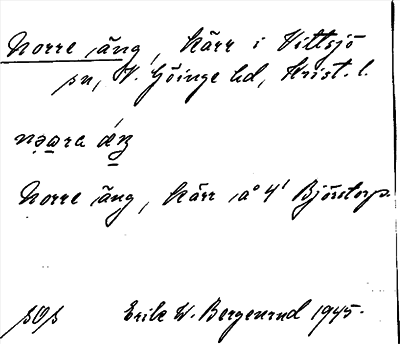 Norre äng, kärr i Vittsjö
sn, V. Göinge hd, Krist. l.
Norre äng, kärr å 4¹ Bjärstorp.
sOs Erik W. Bergenrud 1945.